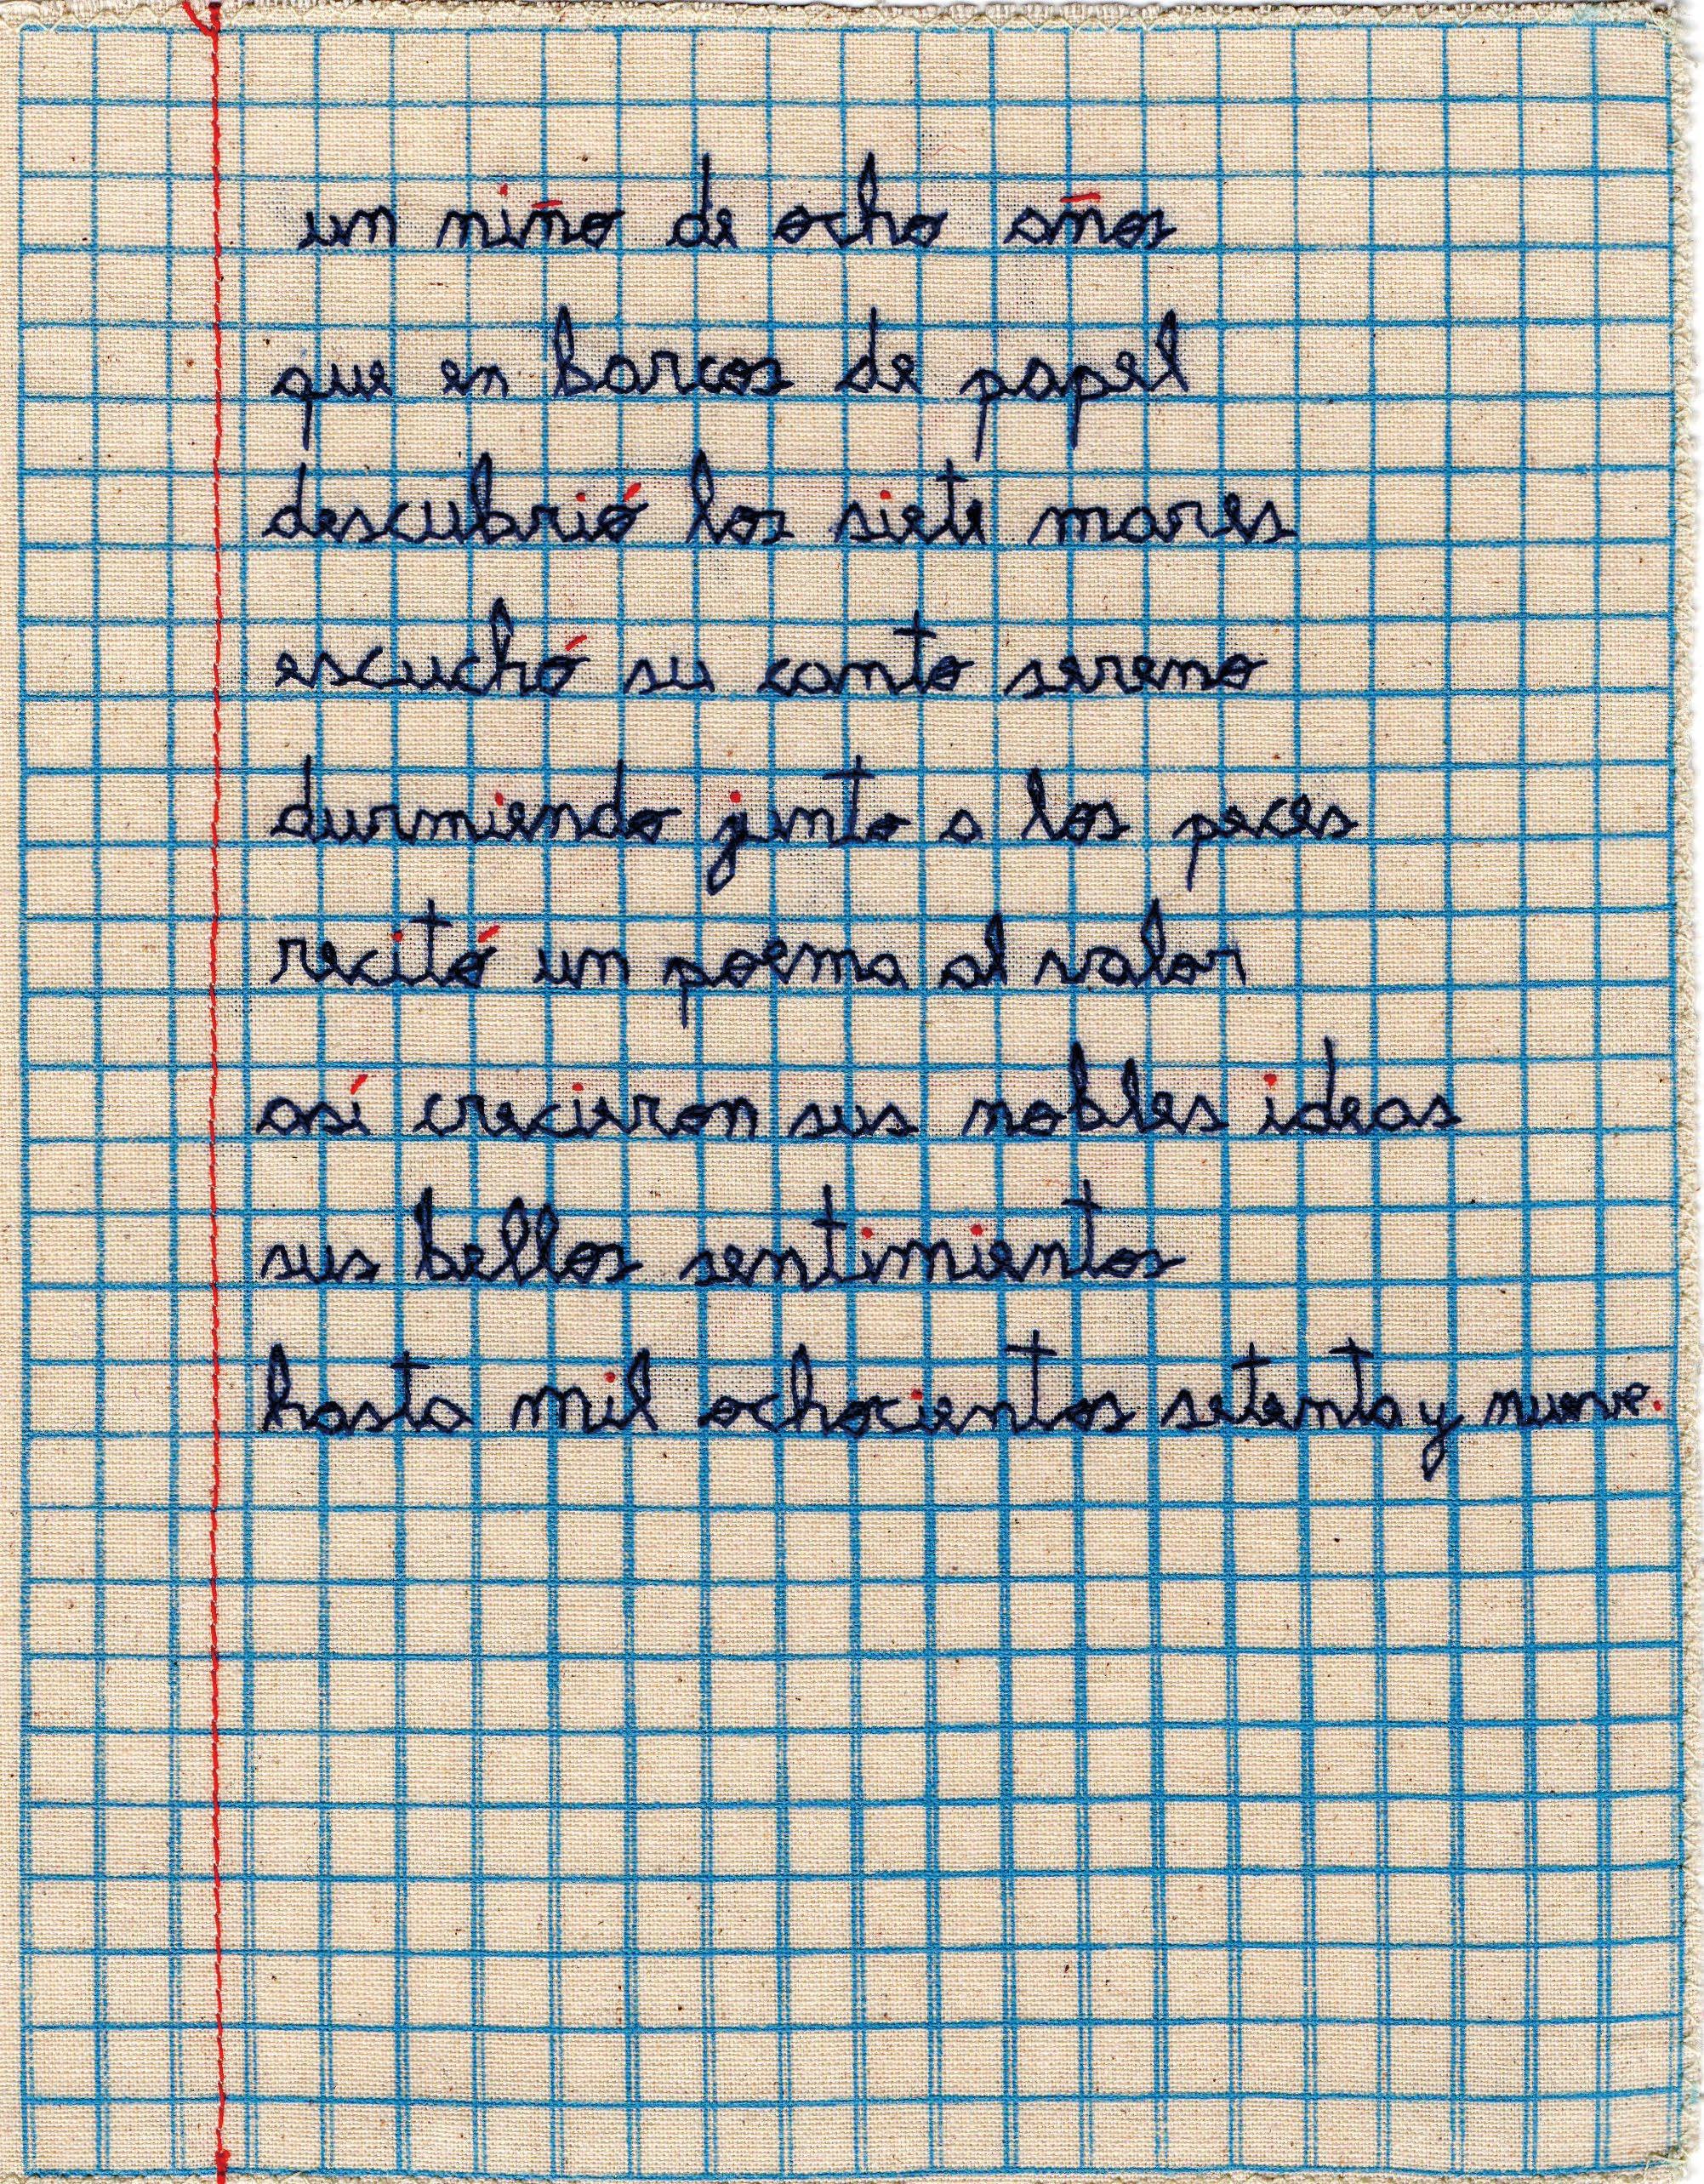 un niño de ocho años
que en barcos de papel
descubrió los siete mares
escuchó su canto sereno
durmiendo junto a los peces
recitó un poema al valor
así crecieron sus nobles ideas
sus bellos sentimientos
hasta mil ochocientos setenta y nueve.